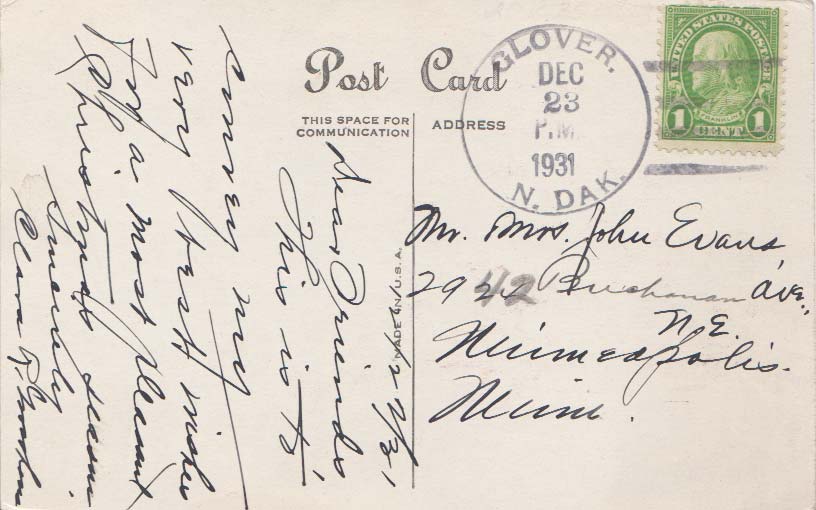 Post Card
THIS SPACE FOR COMMUNICATION
ADDRESS
GLOVER.
DEC
23
P.M.
1931
N. DAK.
UNITED STATES POSTAGE
FRANKLIN
1 CENT 1
MADE IN U.S.A.
Mr. Mrs. John Evans
2942 Buchanan Ave.
N.E.
Minneapolis.
Minn.
Dear Friends
This is to
convey my
very best wishes
For a most pleasant
Christmas season
Sincerely
Clara